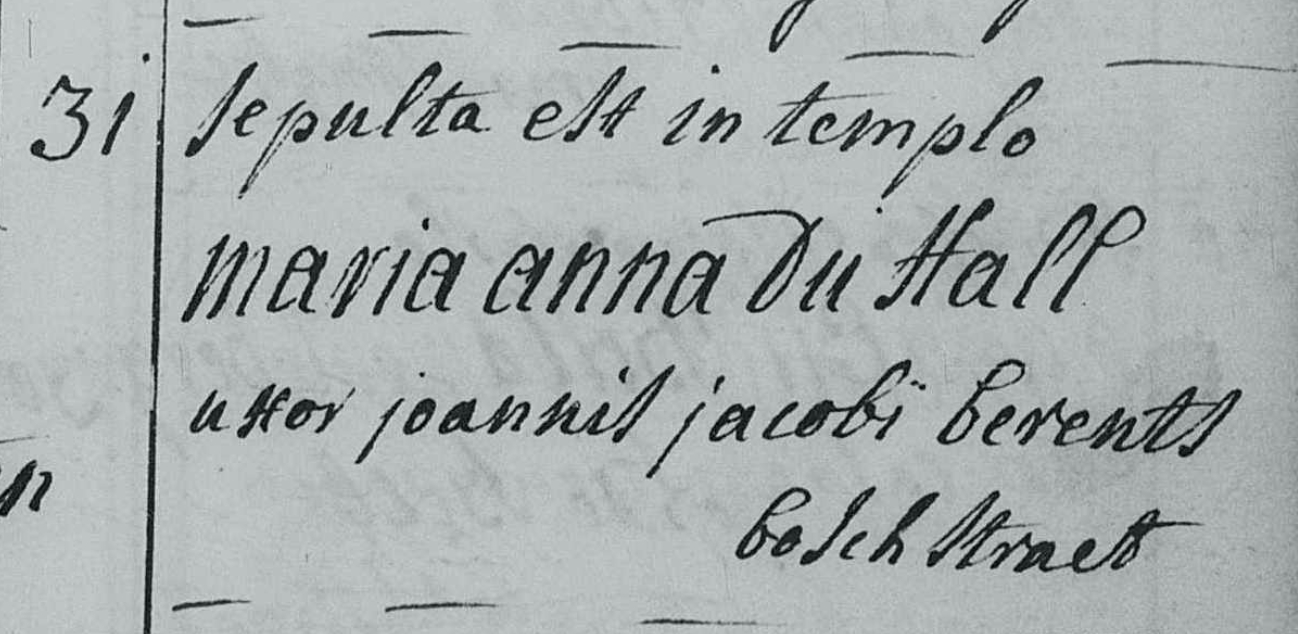 31 sepulta est in templo
maria anna Du Hall
uxor joannis jacobi berents
bosch straet